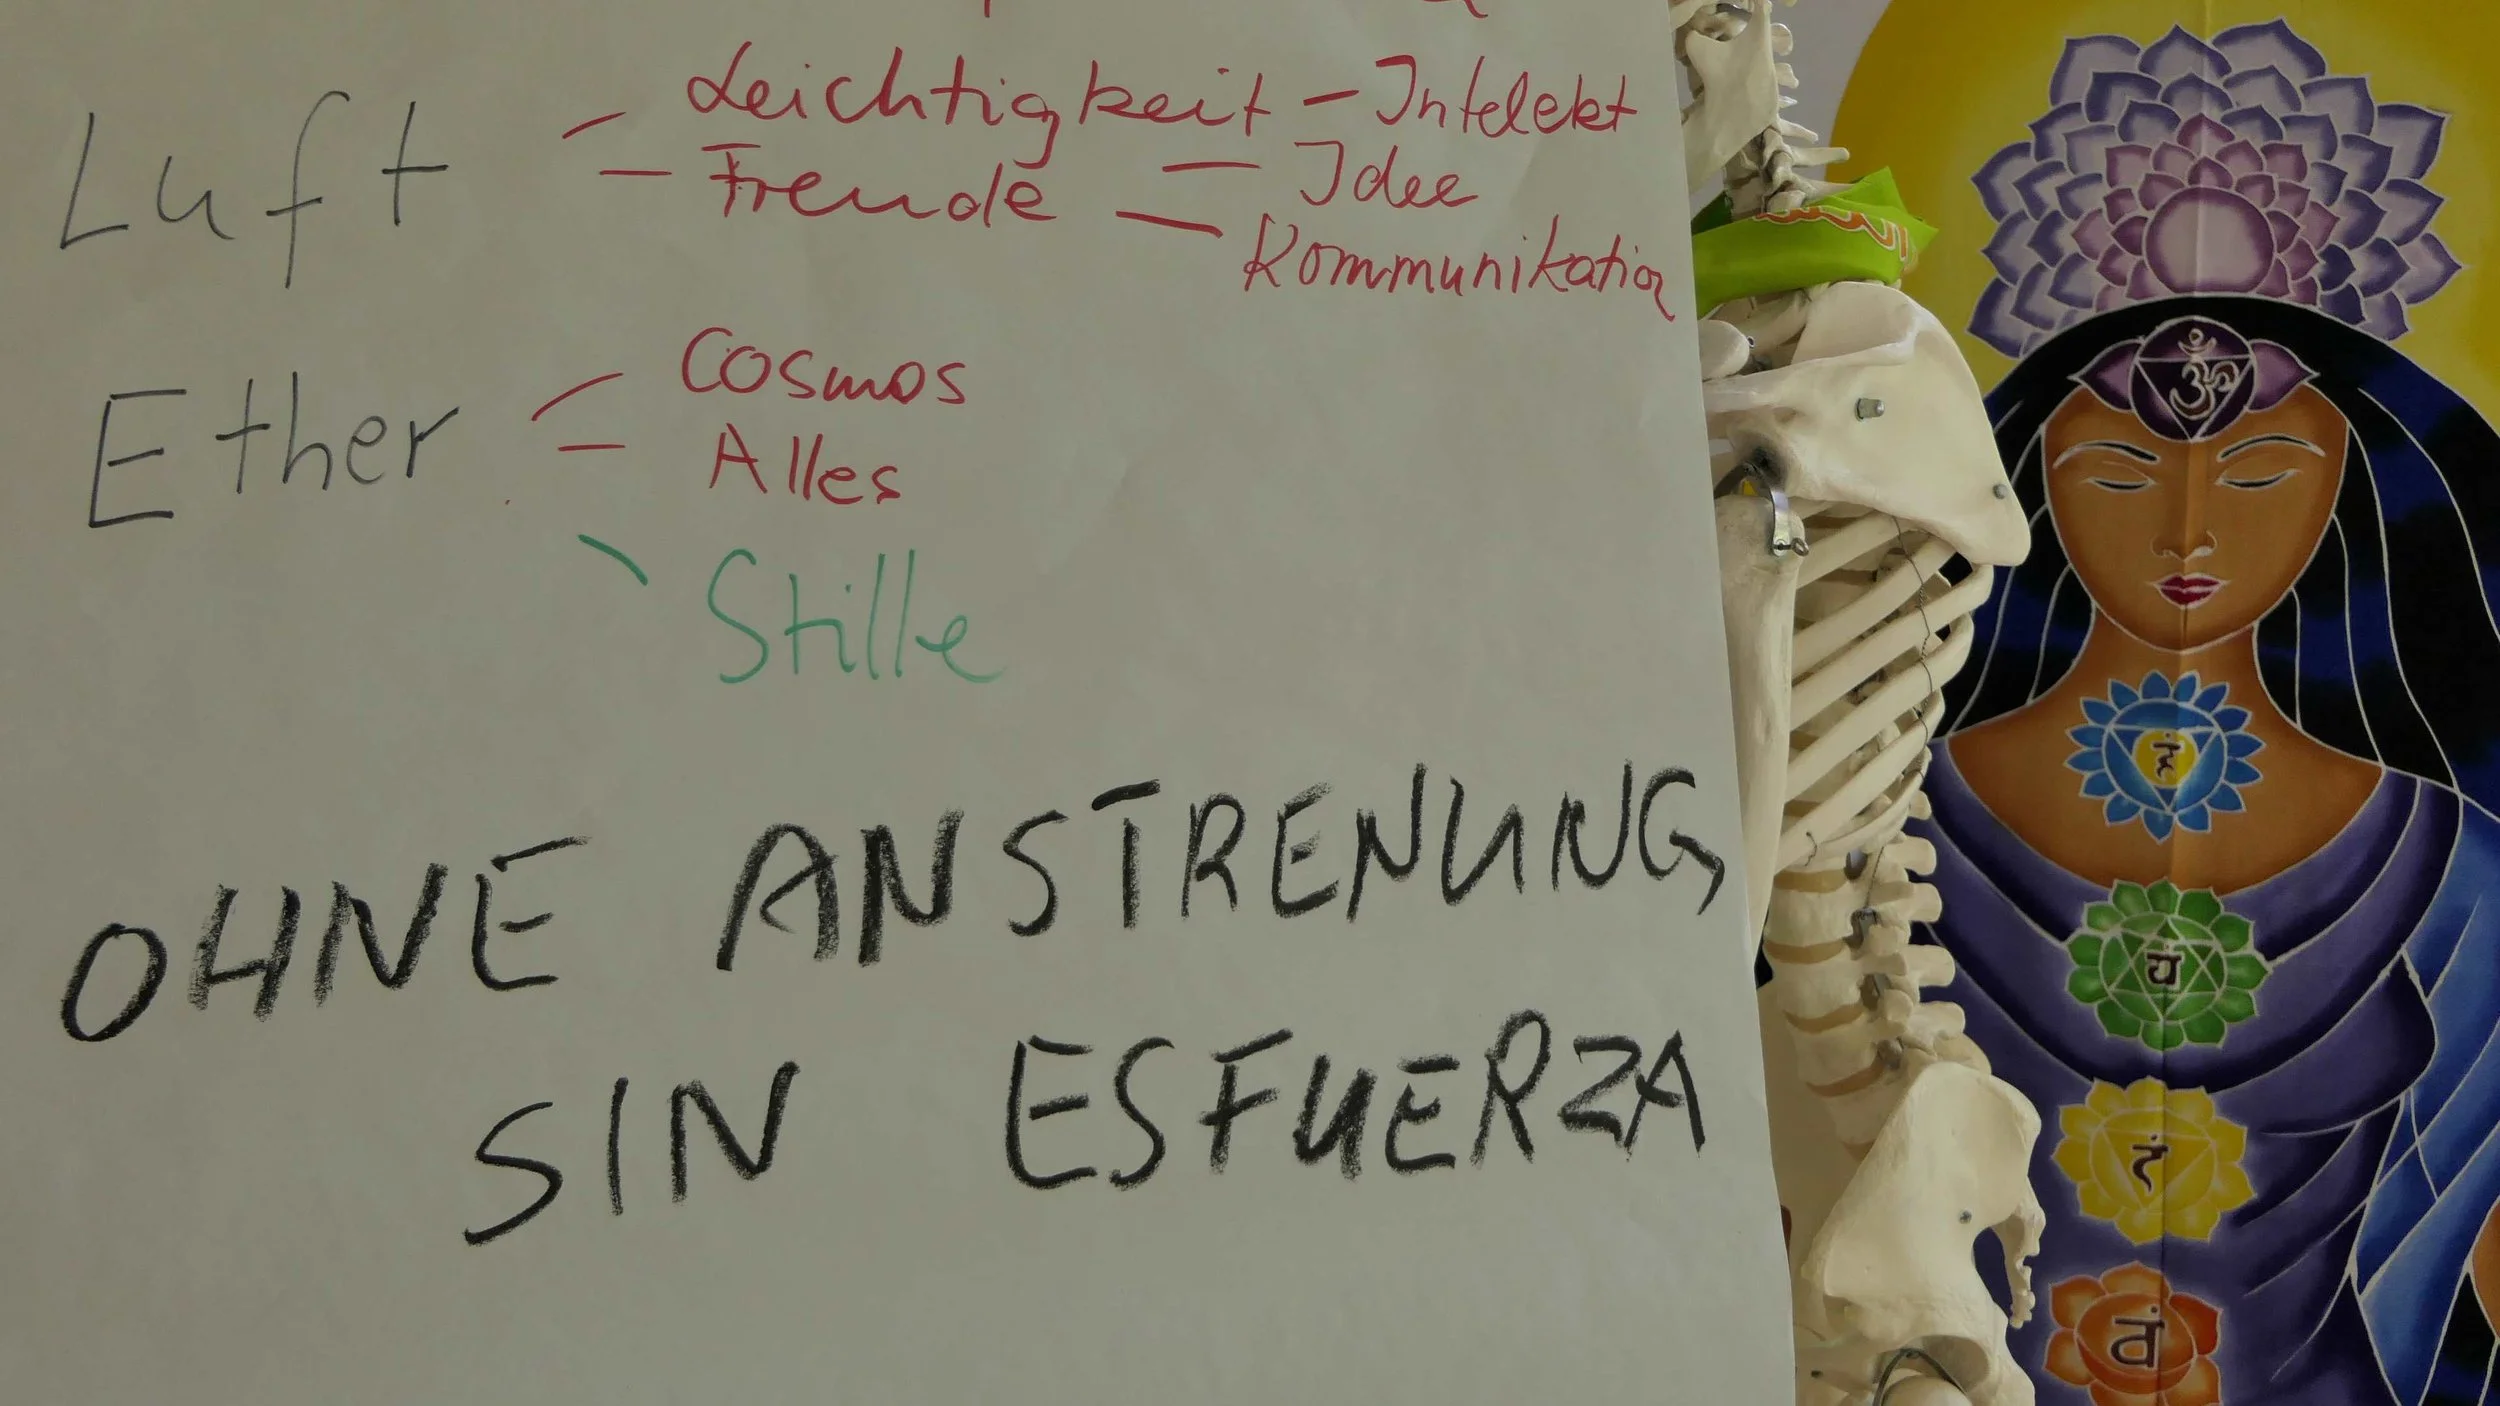 Luft – Leichtigkeit – Intelekt
– Freude – Idee
– Kommunikation
Ether – Cosmos
– Alles
\ Stille
OHNE ANSTRENUNG,
SIN ESFUERZA
ॐ
हं
यं
रं
वं